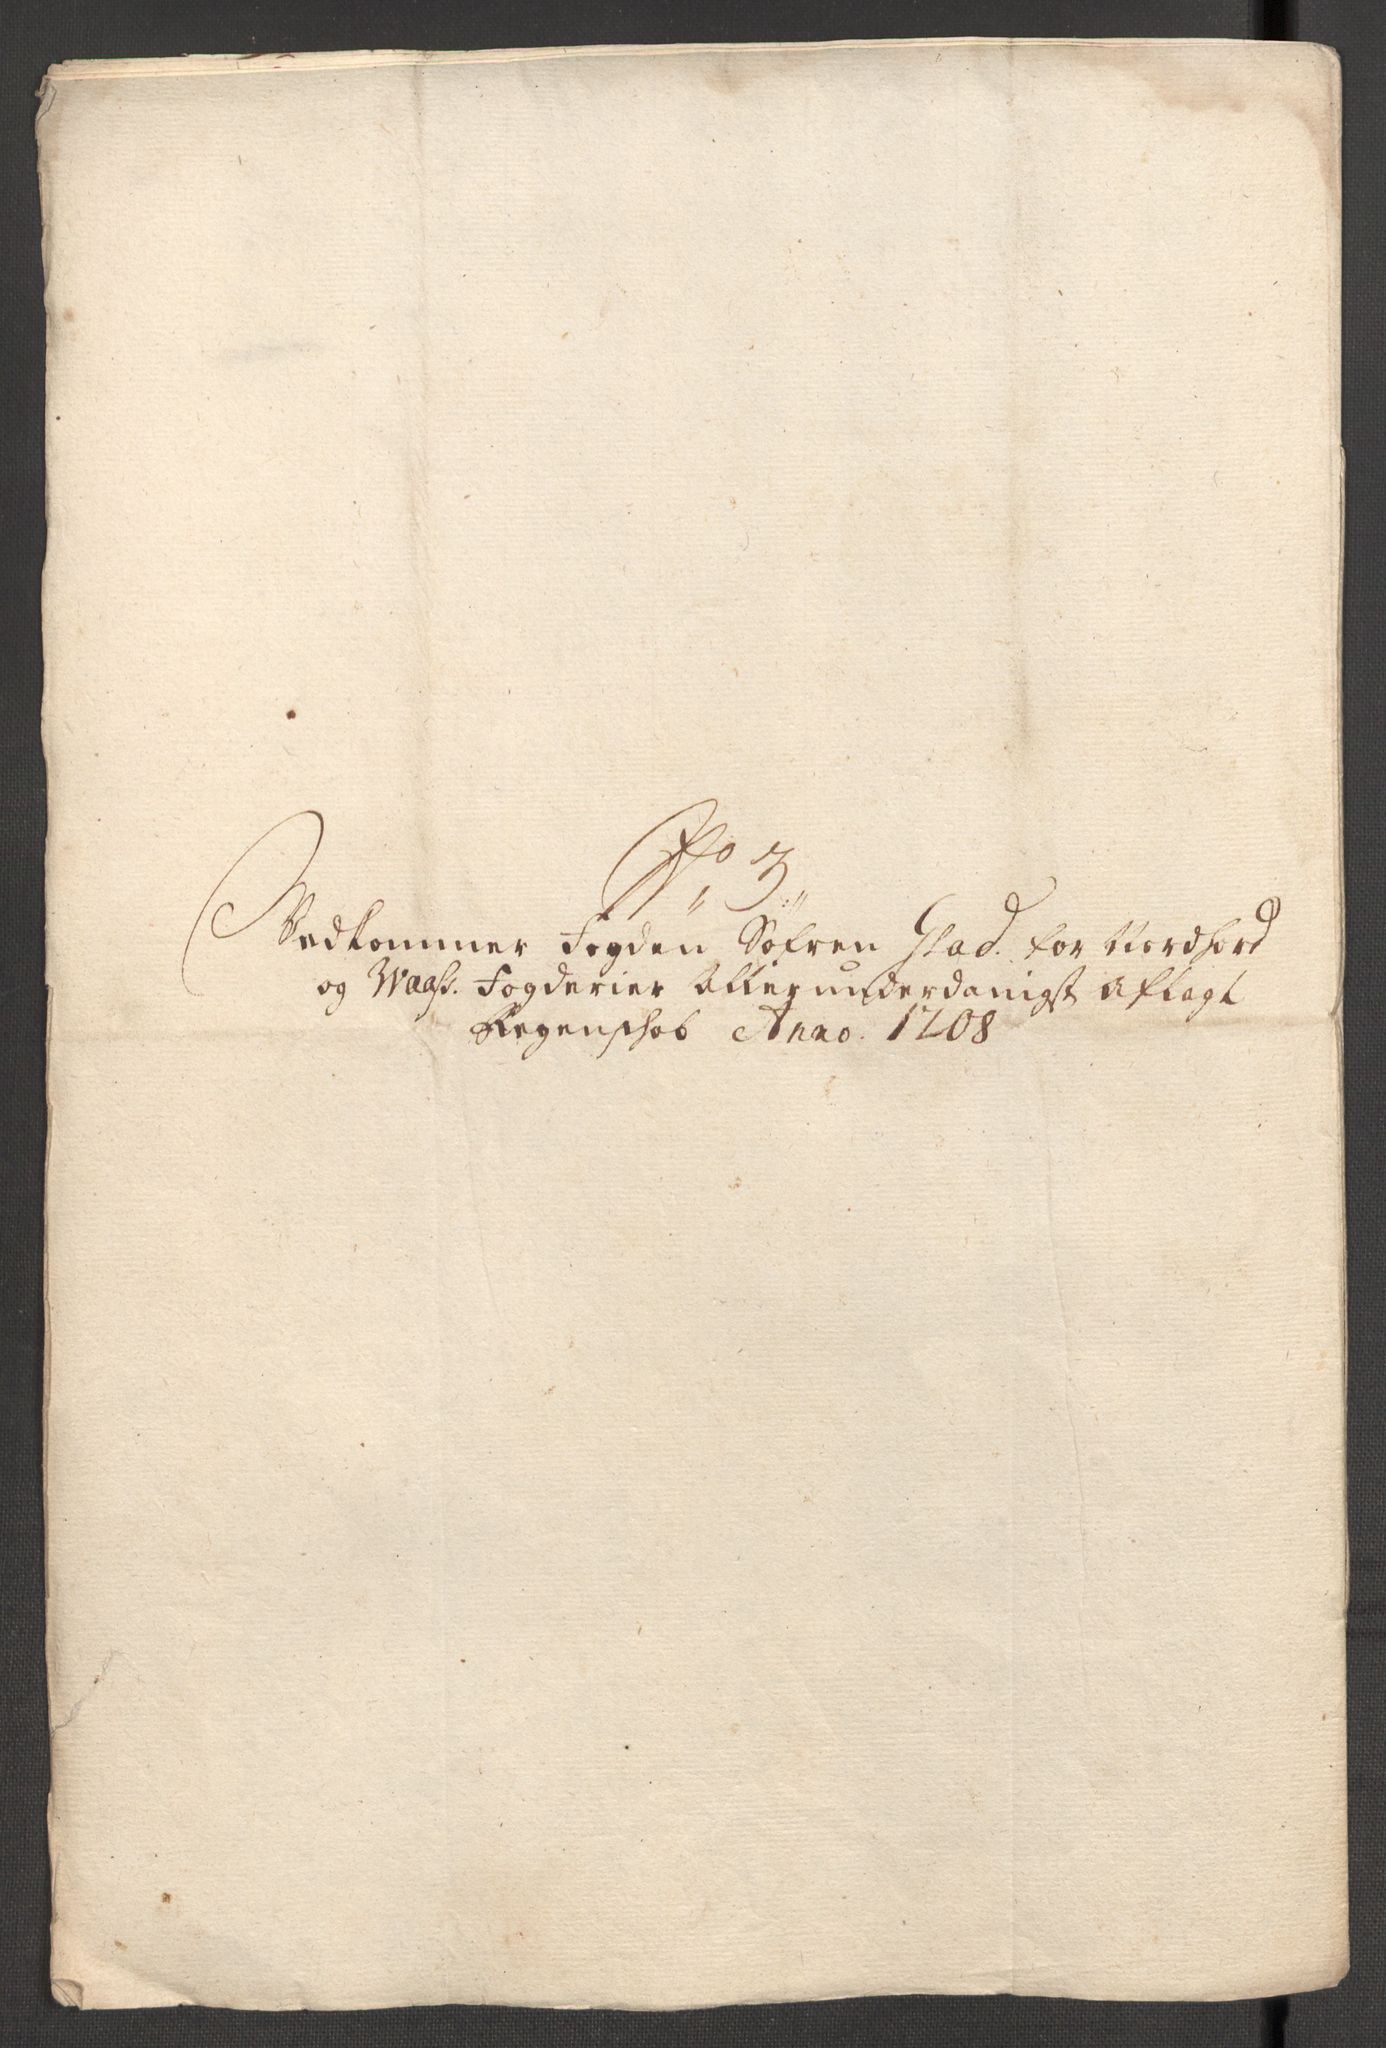 No 3
Vedkommer Fogden Søfren Stad. for Nordhord
og Waass. Fogderier Allerunderdanigst aflagt
Regenschab Anno. 1708